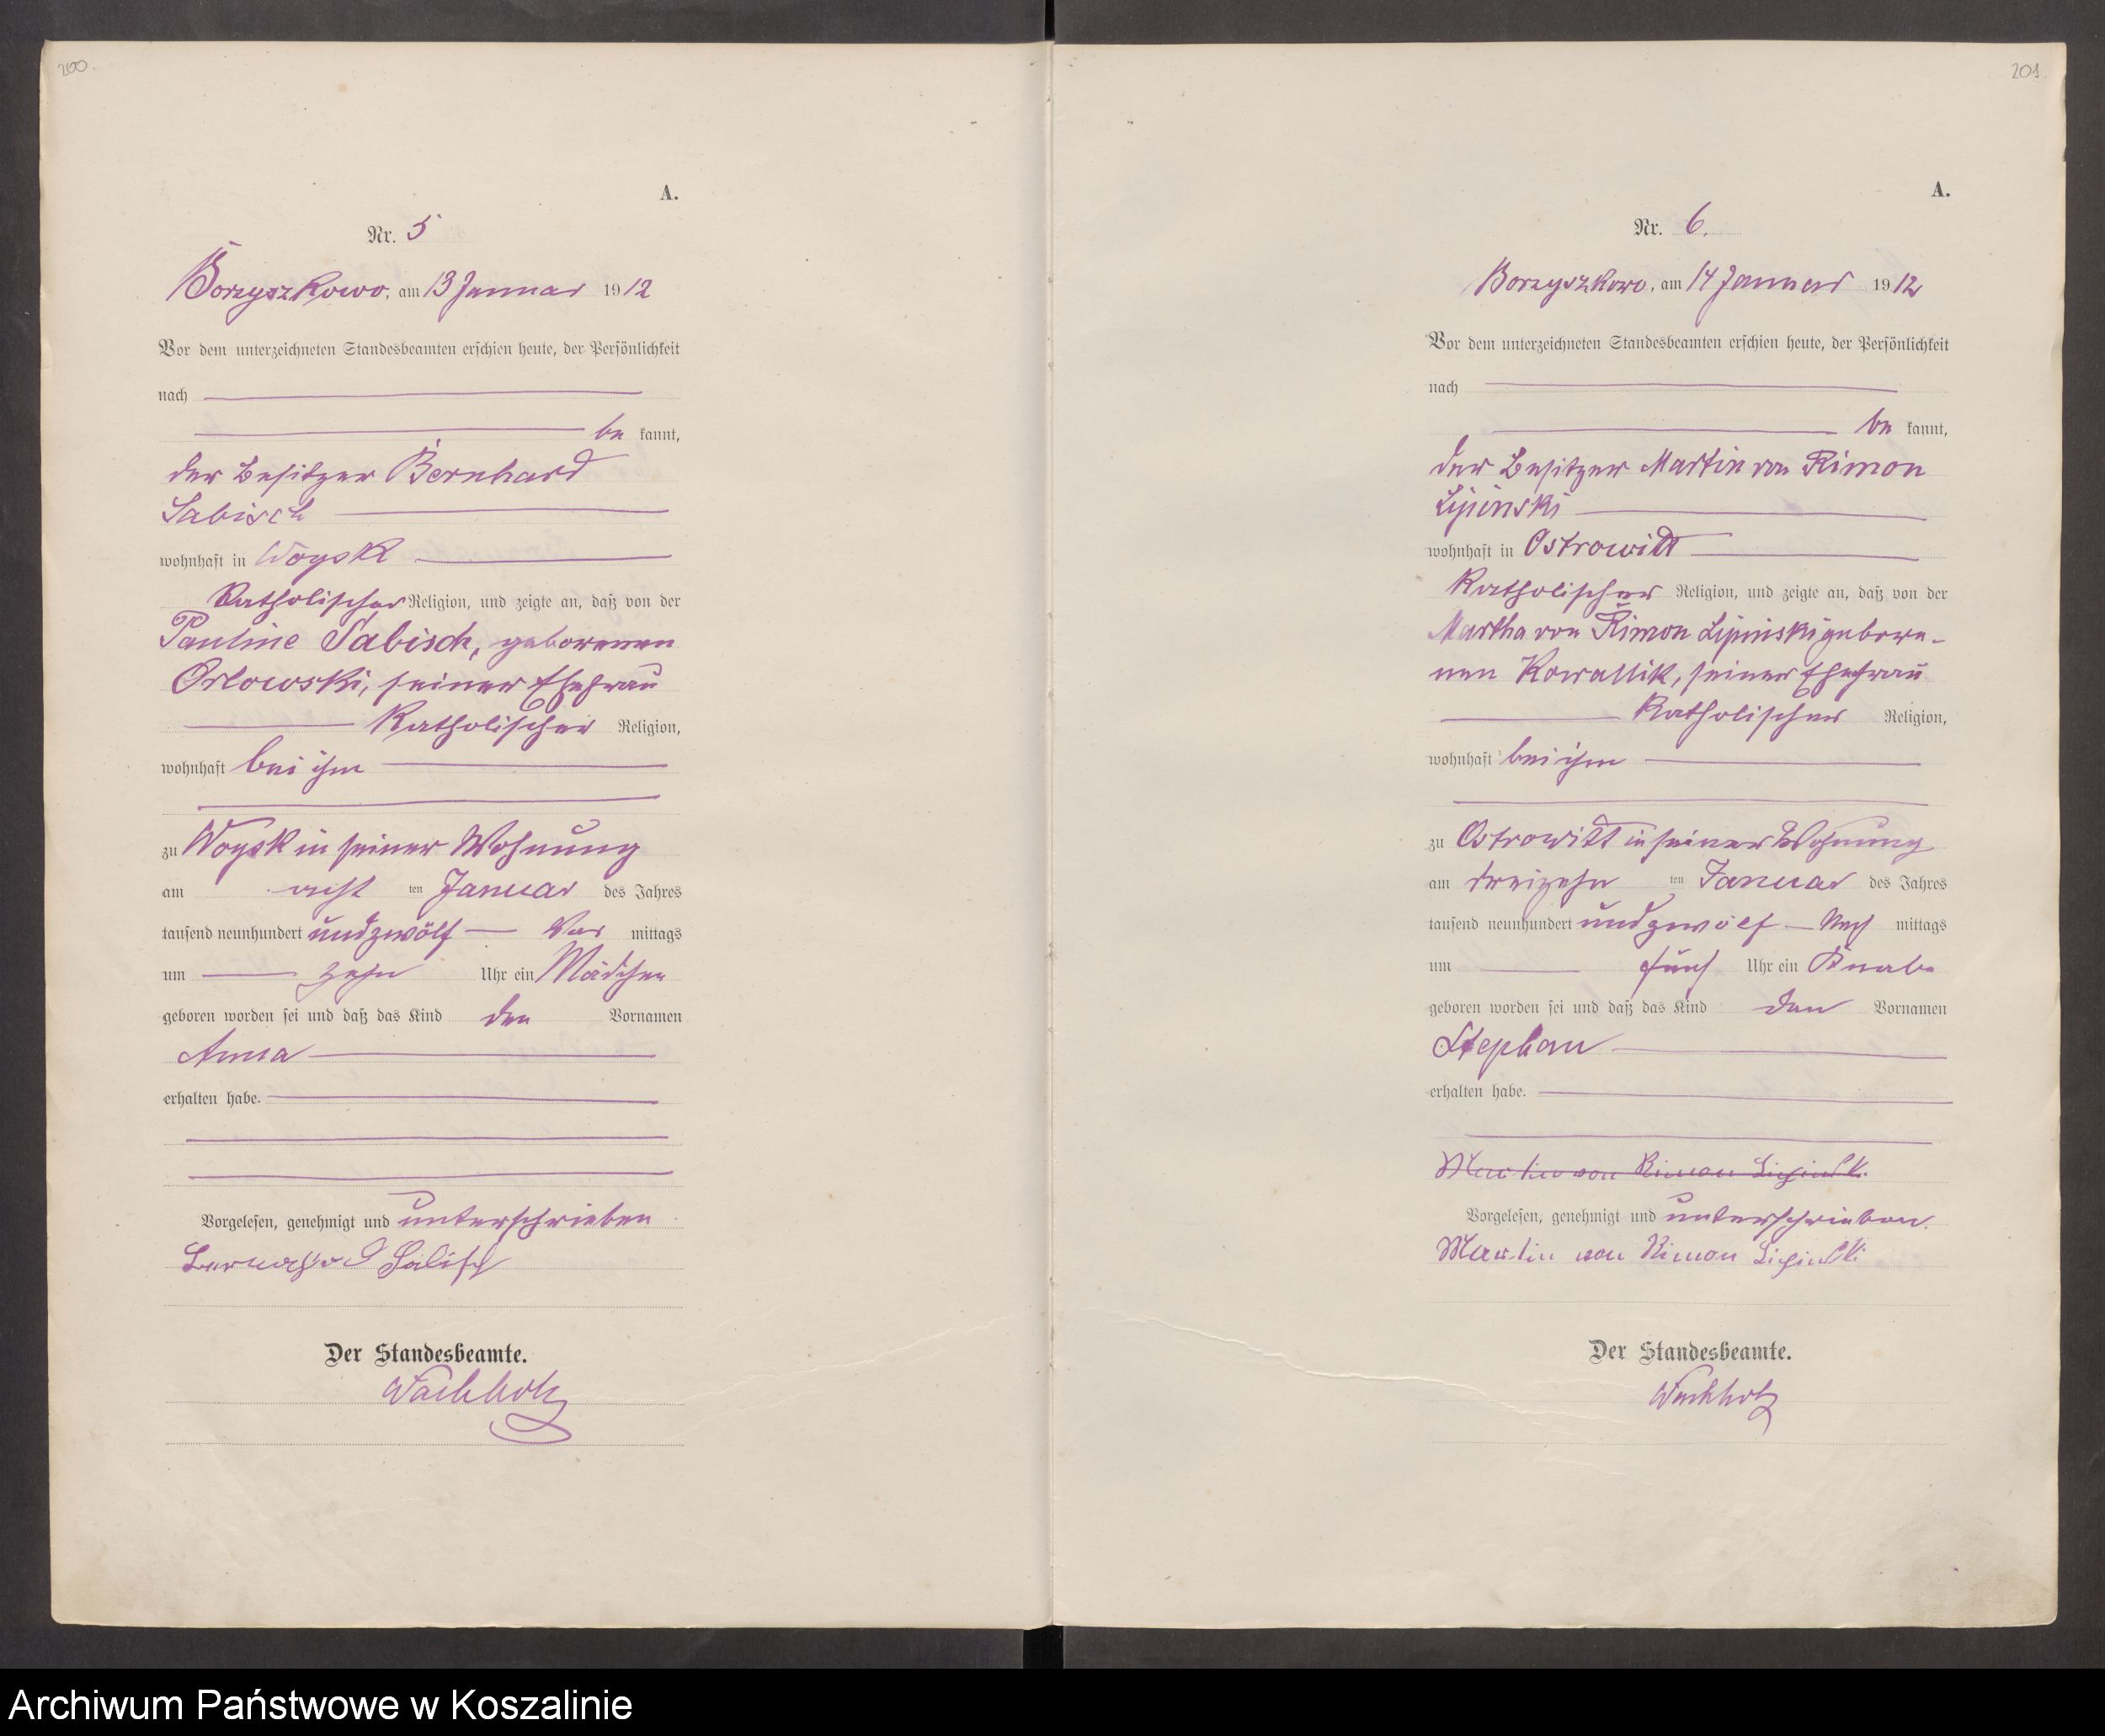 200.
A.
Nr. 5
Borzyszkowo, am 13 Januar 1912
Vor dem unterzeichneten Standesbeamten erschien heute, der Persönlichkeit
nach
be kannt,
der Besitzer Bernhard
Sabisch
wohnhaft in Woysk
Katholischer Religion, und zeigte an, daß von der
Pauline Sabisch, geborenen
Orlowski, seiner Ehefrau
Katholischer Religion,
wohnhaft bei ihm
zu Woysk in seiner Wohnung
am acht ten Januar des Jahres
tausend neunhundert undzwölf Vor mittags
um zehn Uhr ein Mädchen
geboren worden sei und daß das Kind den Vornamen
Anna
erhalten habe.
Vorgelesen, genehmigt und unterschrieben
Bernhard Sabisch
Der Standesbeamte.
Wachholz
201
A.
Nr. 6.
Borzyszkowo, am 14 Januar 1912
Vor dem unterzeichneten Standesbeamten erschien heute, der Persönlichkeit
nach
be kannt,
der Besitzer Martin von Rimon
Lipinski
wohnhaft in Ostrowitt
Katholischer Religion, und zeigte an, daß von der
Martha von Rimon Lipinski gebore-
nen Kowallik, seiner Ehefrau
Katholischer Religion,
wohnhaft bei ihm
zu Ostrowitt in seiner Wohnung
am dreizehn ten Januar des Jahres
tausend neunhundert undzwölf Nach mittags
um fünf Uhr ein Knabe
geboren worden sei und daß das Kind den Vornamen
Stephan
erhalten habe.
Martin von Rimon Lipinski.
Vorgelesen, genehmigt und unterschrieben.
Martin von Rimon Lipinski
Der Standesbeamte.
Wachholz
Archiwum Państwowe w Koszalinie